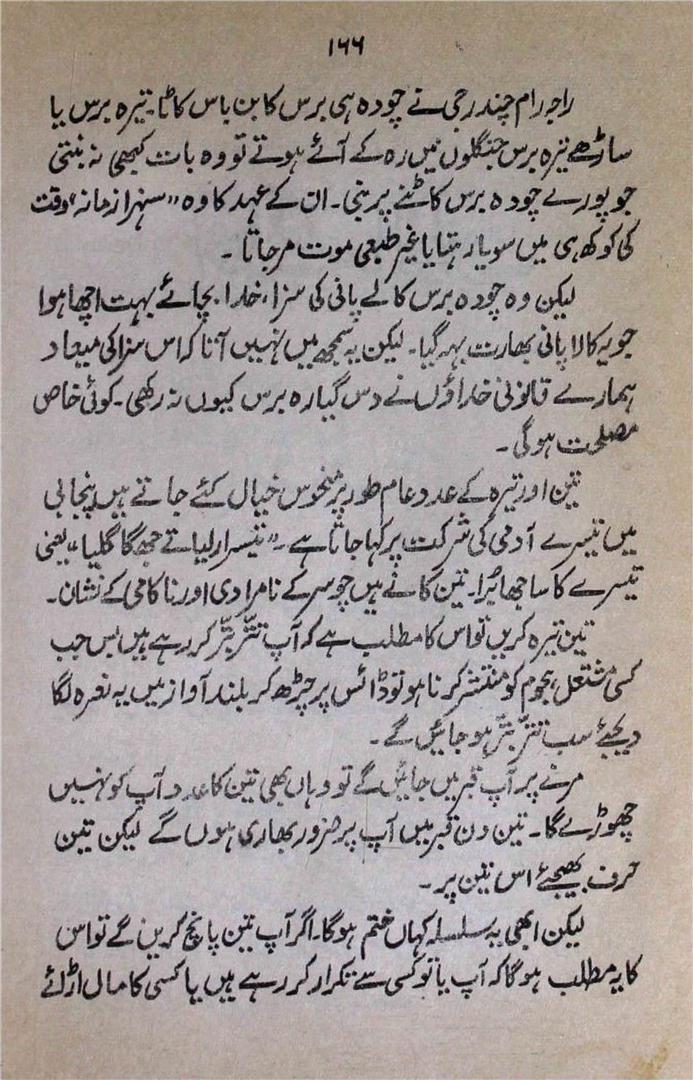 ۱۶۶
راجہ رام چندر جی نے چودہ ہی برس کا بن باس کاٹا۔ تیرہ برس یا
ساڑھے تیرہ برس جنگلوں میں رہ کے آئے ہوتے تو وہ بات کبھی نہ بنتی
جو پورے چودہ برس کاٹنے پر بنی۔ ان کے عہد کا وہ "سنہرا زمانہ" وقت
کی کوکھ ہی میں سویا رہتا یا غیر طبعی موت مر جاتا۔
لیکن وہ چودہ برس کالے پانی کی سزا، خدا بچائے بہت اچھا ہوا
جو یہ کالا پانی بھارت بہہ گیا۔ لیکن یہ سمجھ میں نہیں آتا کہ اس سزا کی میعاد
ہمارے قانونی خداؤں نے دس گیارہ برس کیوں نہ رکھی۔ کوئی خاص
مصلحت ہوگی۔
تین اور تیرہ کے عدد عام طور پر منحوس خیال کئے جاتے ہیں پنجابی
میں تیسرے آدمی کی شرکت پر کہا جاتا ہے۔ "تیسرا رلیا تے جھگا گلیا" یعنی
تیسرے کا ساجھا بُرا۔ تین کانے ہیں چوسر کے نامرادی اور ناکامی کے نشان۔
تین تیرہ کریں تو اس کا مطلب ہے کہ آپ تتّر بتّر کر رہے ہیں بس جب
کسی مشتعل ہجوم کو منتشر کرنا ہو تو ڈائس پر چڑھ کر بلند آواز میں یہ نعرہ لگا
دیجئے سب تتّر بتّر ہو جائیں گے۔
مرنے پر آپ قبر میں جائیں گے تو وہاں بھی تین کا عدد آپ کو نہیں
چھوڑے گا۔ تین دن قبر میں آپ پر ضرور بھاری ہوں گے لیکن تین
حرف بھیجئے اس تین پر۔
لیکن ابھی یہ سلسلہ کہاں ختم ہوگا۔ اگر آپ تین پانچ کریں گے تو اس
کا یہ مطلب ہوگا کہ آپ یا تو کسی سے تکرار کر رہے ہیں یا کسی کا مال اڑانے